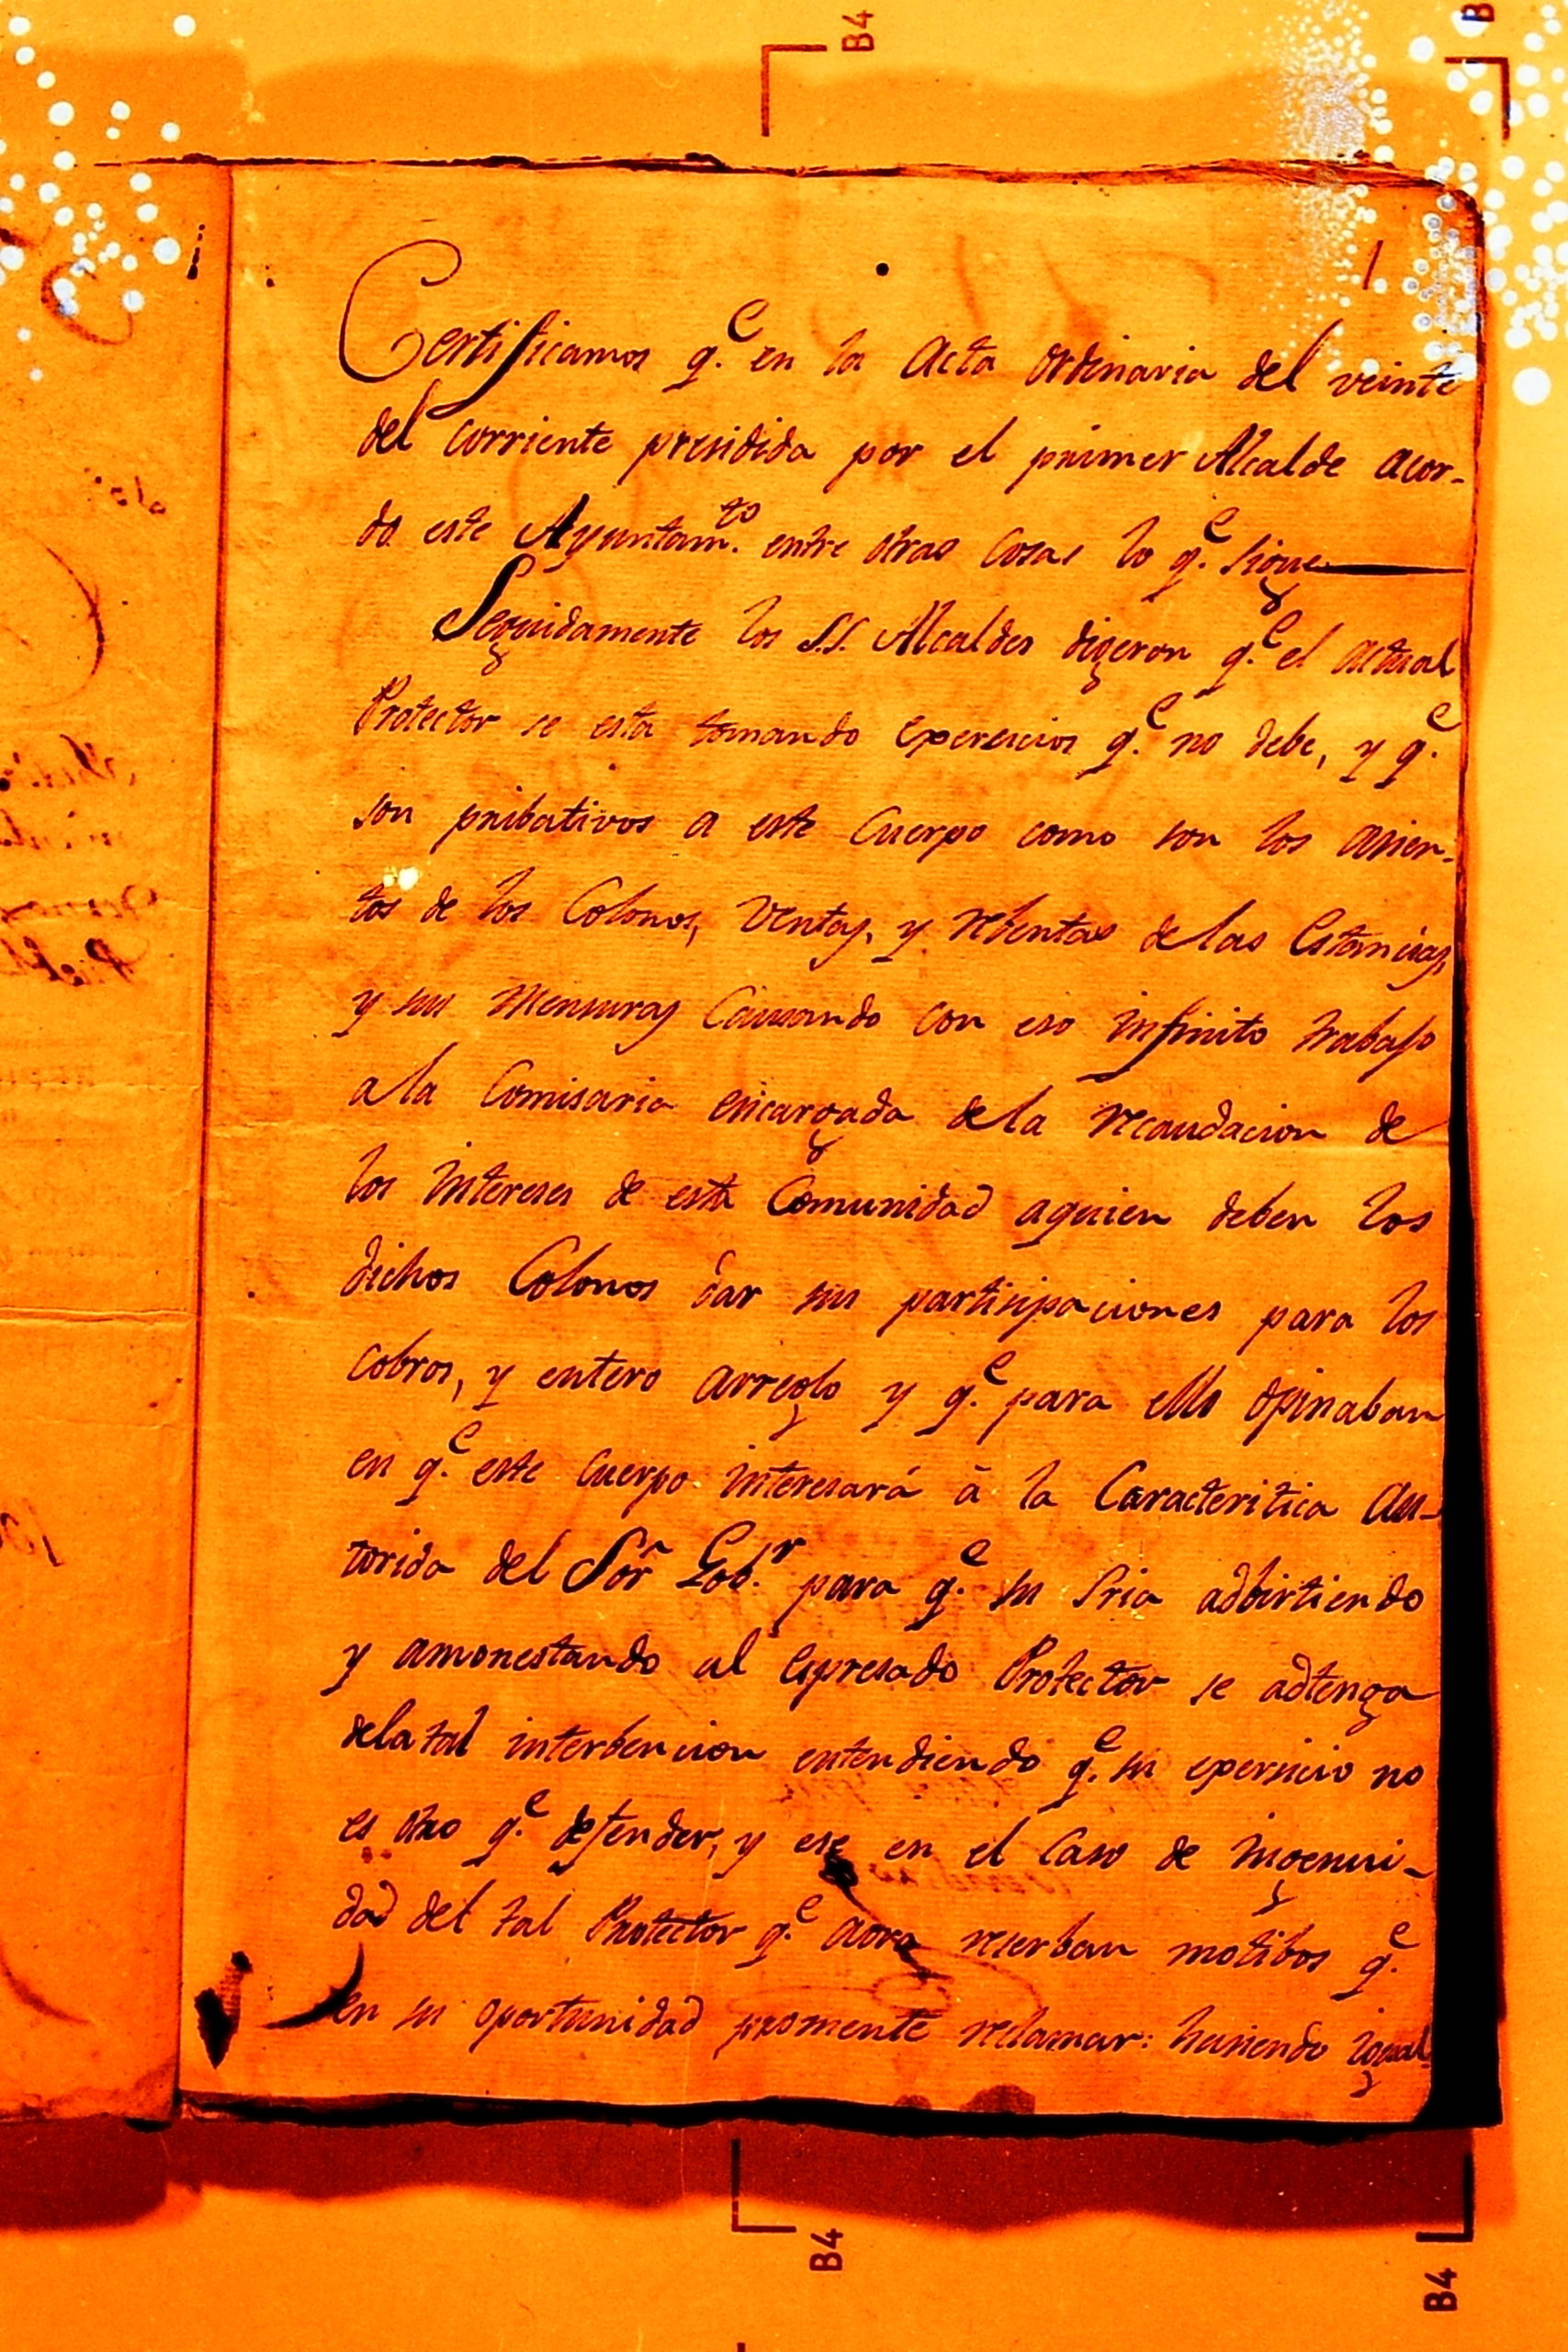 B4
B
1
Certificamos q.e en la Acta ordinaria del veinte
del corriente presidida por el primer Alcalde acor-
do este Ayuntam.to entre otras cosas lo q.e sigue
Seguidamente los S.S. Alcaldes digeron q.e el actual
Protector se esta tomando exersicios q.e no debe, y q.e
son pribativos a este Cuerpo como son los asien-
tos de los Colonos, Ventas, y rebentas de las Estancias,
y sus Mensuras Causando con eso infinito trabajo
a la Comisaria encargada de la recaudacion de
los intereses de esta Comunidad aquien deben los
dichos Colonos dar sus partisipaciones para los
cobros, y entero arreglo y q.e para ello opinaban
en q.e este Cuerpo interesará à la Caracteritica Au-
torida del Sor Gob.r para q.e su Sria adbirtiendo
y amonestando al espresado Protector se adtenga
dela tal interbencion entendiendo q.e su exersicio no
es otro q.e defender, y ese en el Caso de ingenui-
dad del tal Protector q.e aora reserban motibos q.e
en su oportunidad reclamar: hasiendo igual
B4
B4